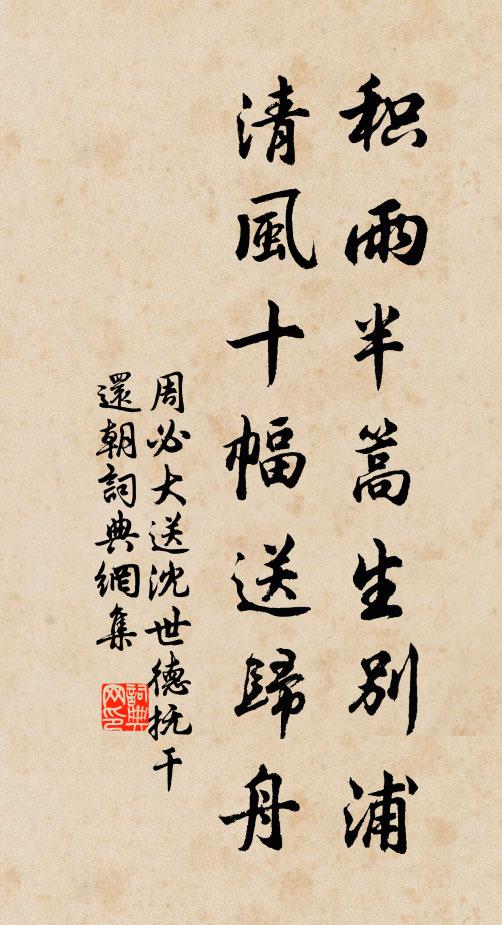 积雨半篙生别浦
清風十幅送歸舟
周必大送沈世德抚干
還朝詞典網集
詞典网印